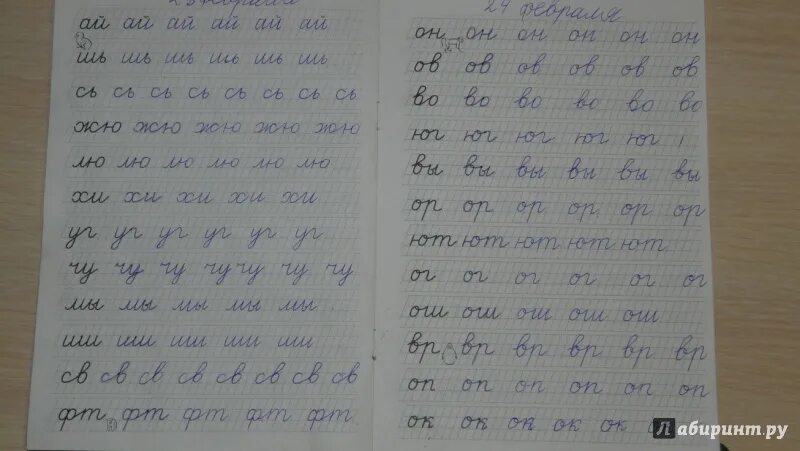 23 февраля
ай ай ай ай ай ай
шь шь шь шь шь шь
сь сь сь сь сь сь сь сь
жю жю жю жю жю
лю лю лю лю лю лю
хи хи хи хи хи
уг уг уг уг уг уг
чу чу чу чу чу чу чу
мы мы мы мы мы
ши ши ши ши ши
св св св св св св св св
фт фт фт фт фт
24 февраля
он он он он он он
ов ов ов ов ов ов
во во во во во во
юг юг юг юг юг
вы вы вы вы вы вы
ор ор ор ор ор ор
ют ют ют ют ют
ог ог ог ог ог ог
ош ош ош ош ош
вр вр вр вр вр вр
оп оп оп оп оп оп
ок ок ок ок ок
Лабиринт.ру